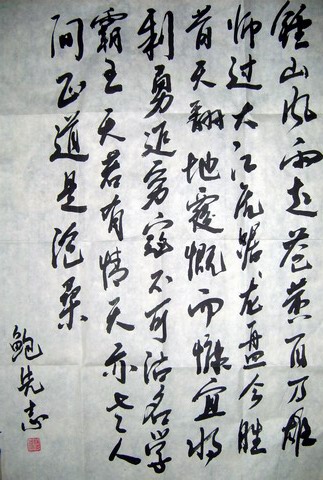 鍾山风雨起苍黄百万雄
师过大江虎踞龙盘今胜
昔天翻地覆慨而慷宜将
剩勇追穷寇不可沽名学
霸王天若有情天亦老人
间正道是沧桑
鲍先志